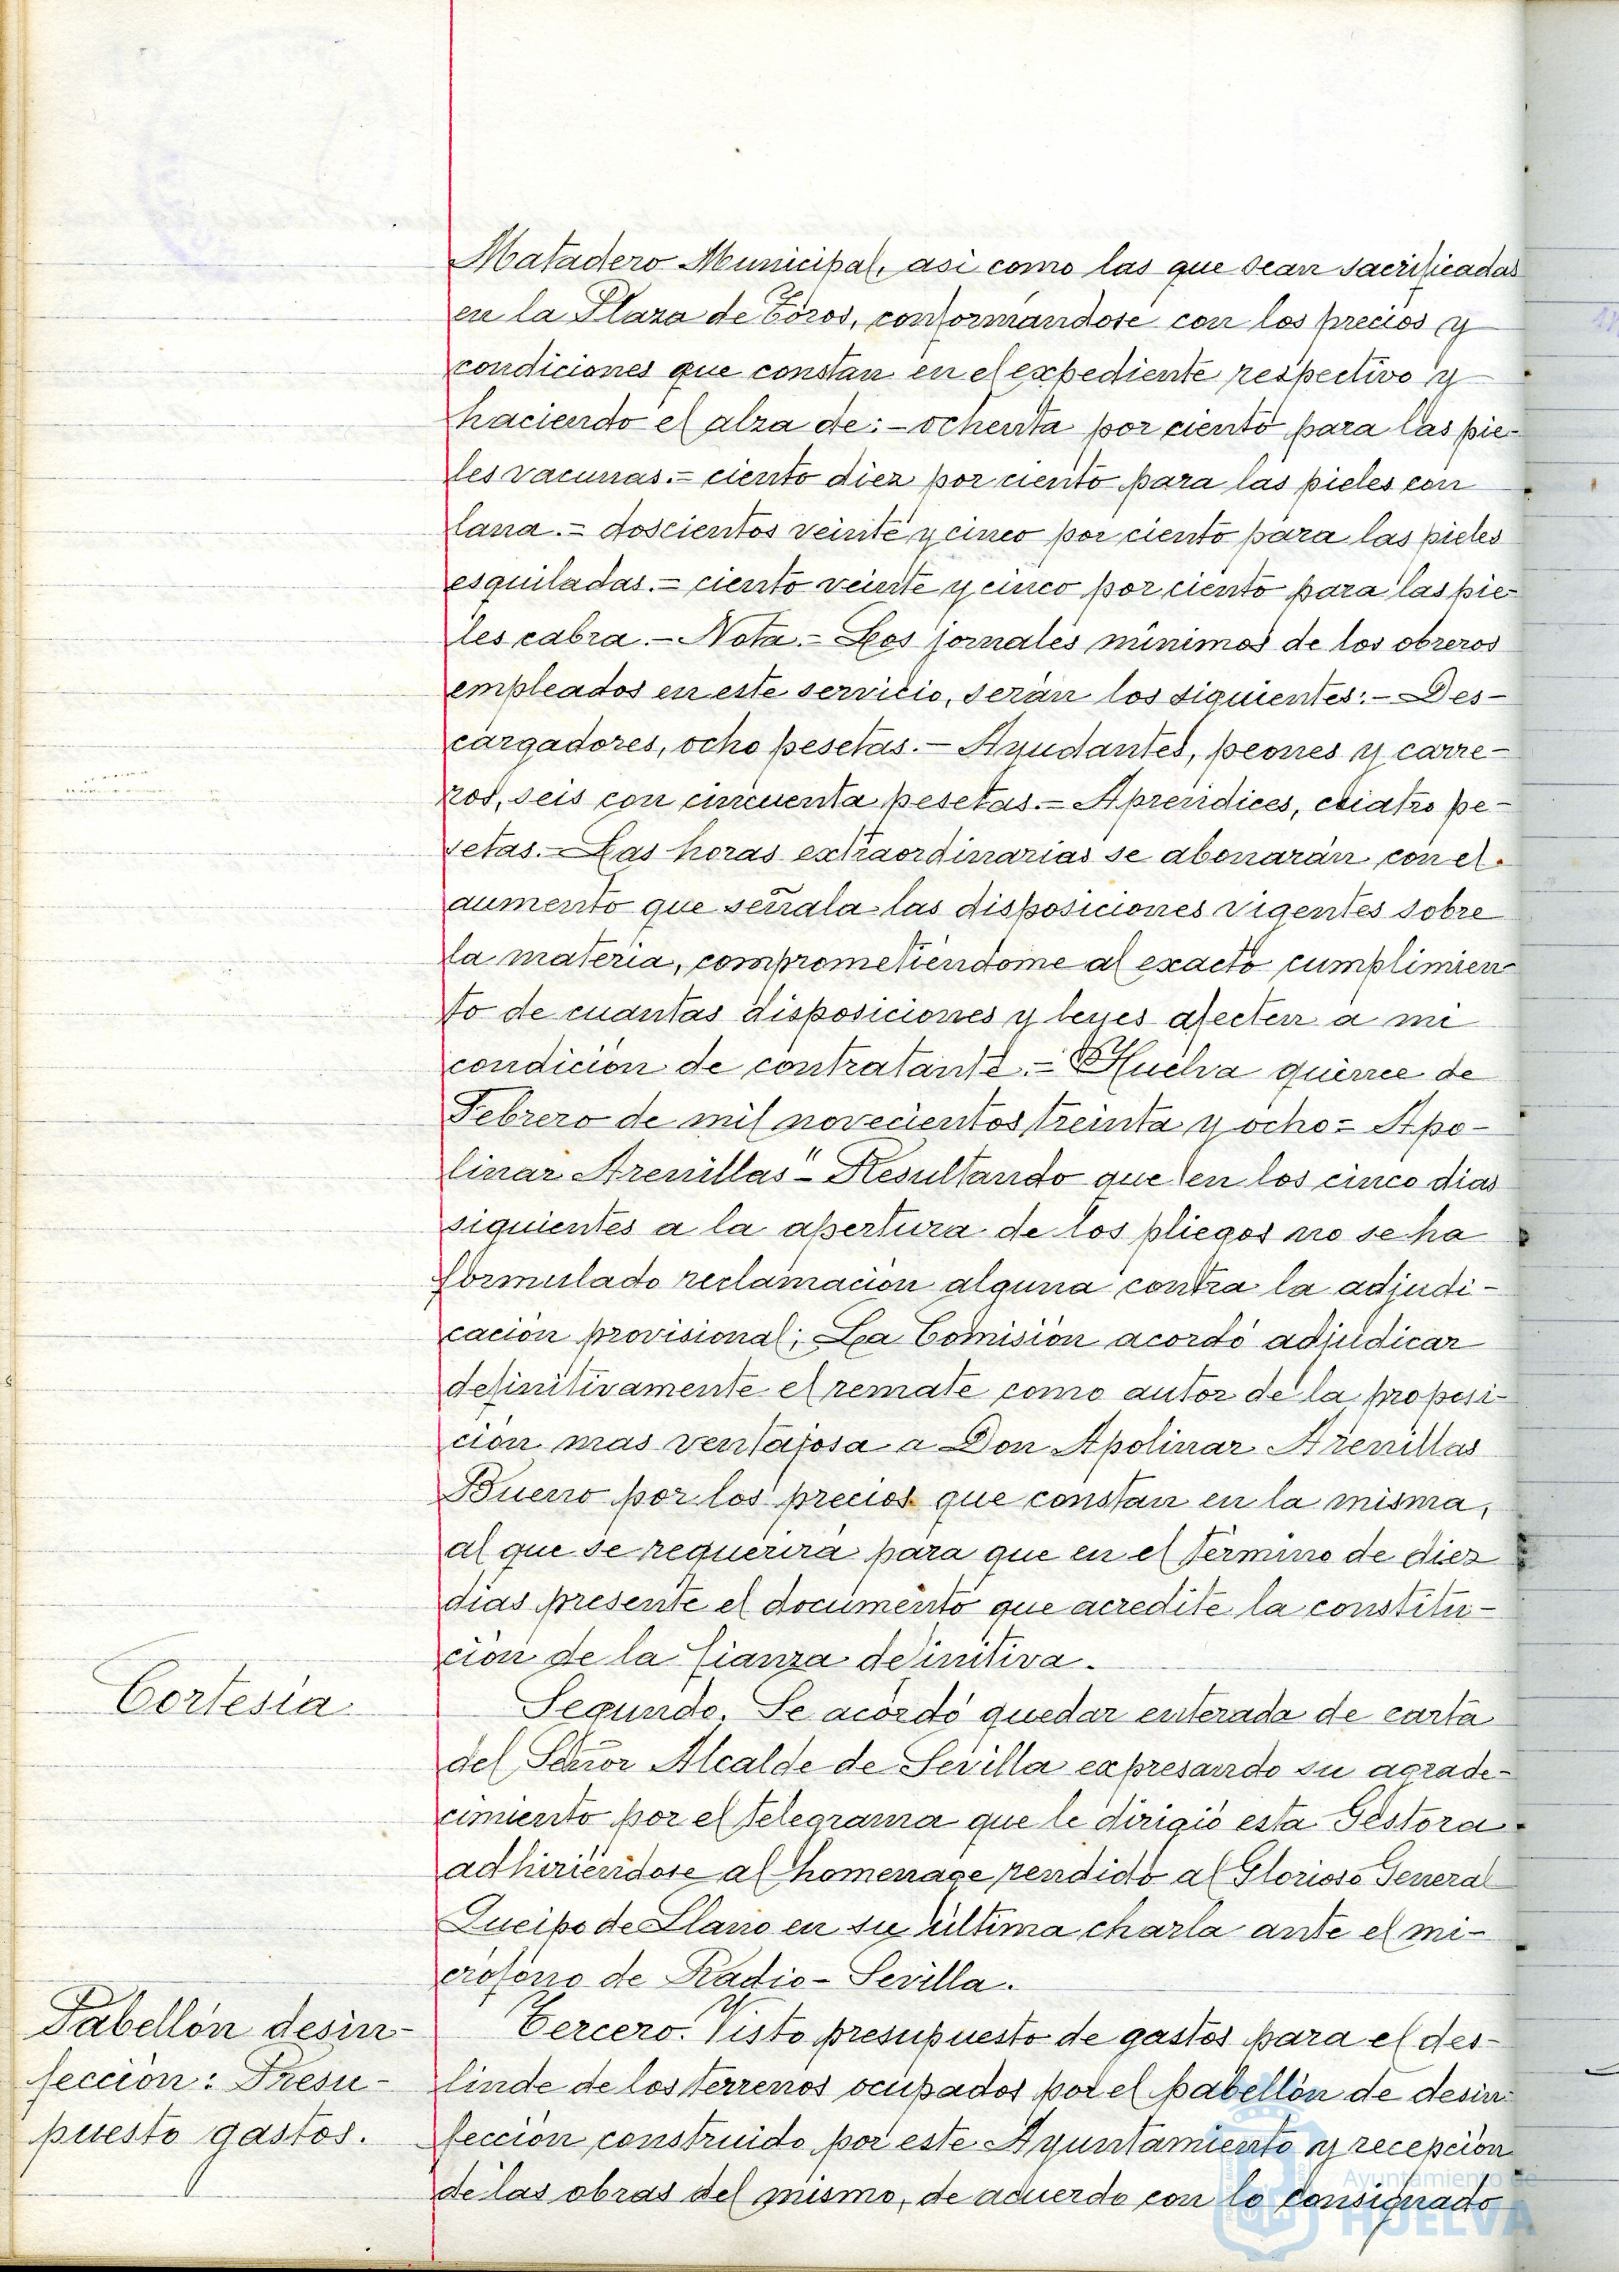 Matadero Municipal, asi como las que sean sacrificadas
en la Plaza de Toros, conformandose con los precios y
condiciones que constan en el expediente respectivo y
haciendo el alza de: - ochenta por ciento para las pie-
les vacunas. = ciento diez por ciento para las pieles con
lana. = doscientos veinte y cinco por ciento para las pieles
esquiladas. = ciento veinte y cinco por ciento para las pie-
les cabra. - Nota. - Los jornales minimos de los obreros
empleados en este servicio, serán los siguientes: - Des-
cargadores, ocho pesetas. - Ayudantes, peones y carre-
ros, seis con cincuenta pesetas. = Aprendices, cuatro pe-
setas. - Las horas extraordinarias se abonarán con el
aumento que señala las disposiciones vigentes sobre
la materia, comprometiéndome al exacto cumplimien
to de cuantas disposiciones y leyes afecten a mi
condición de contratante. = Huelva quince de
Febrero de mil novecientos treinta y ocho = Apo-
linar Arenillas" - Resultando que en los cinco dias
siguientes a la apertura de los pliegos no se ha
formulado reclamación alguna contra la adjudi-
cación provisional; La Comisión acordó adjudicar
definitivamente el remate como autor de la proposi-
ción mas ventajosa a Don Apolinar Arenillas
Bueno por los precios que constan en la misma,
al que se requerirá para que en el término de diez
dias presente el documento que acredite la constitu-
ción de la fianza definitiva.
Cortesía
Segundo. Se acordó quedar enterada de carta
del Señor Alcalde de Sevilla expresando su agrade-
cimiento por el telegrama que le dirigió esta Gestora
adhiriéndose al homenage rendido al Glorioso General
Queipo de Llano en su última charla ante el mi-
crófono de Radio-Sevilla.
Pabellón desin-
fección: Presu-
puesto gastos.
Tercero. Visto presupuesto de gastos para el des-
linde de los terrenos ocupados por el pabellón de desin
fección construido por este Ayuntamiento y recepción
de las obras del mismo, de acuerdo con lo consignado
Ayuntamiento de
HUELVA